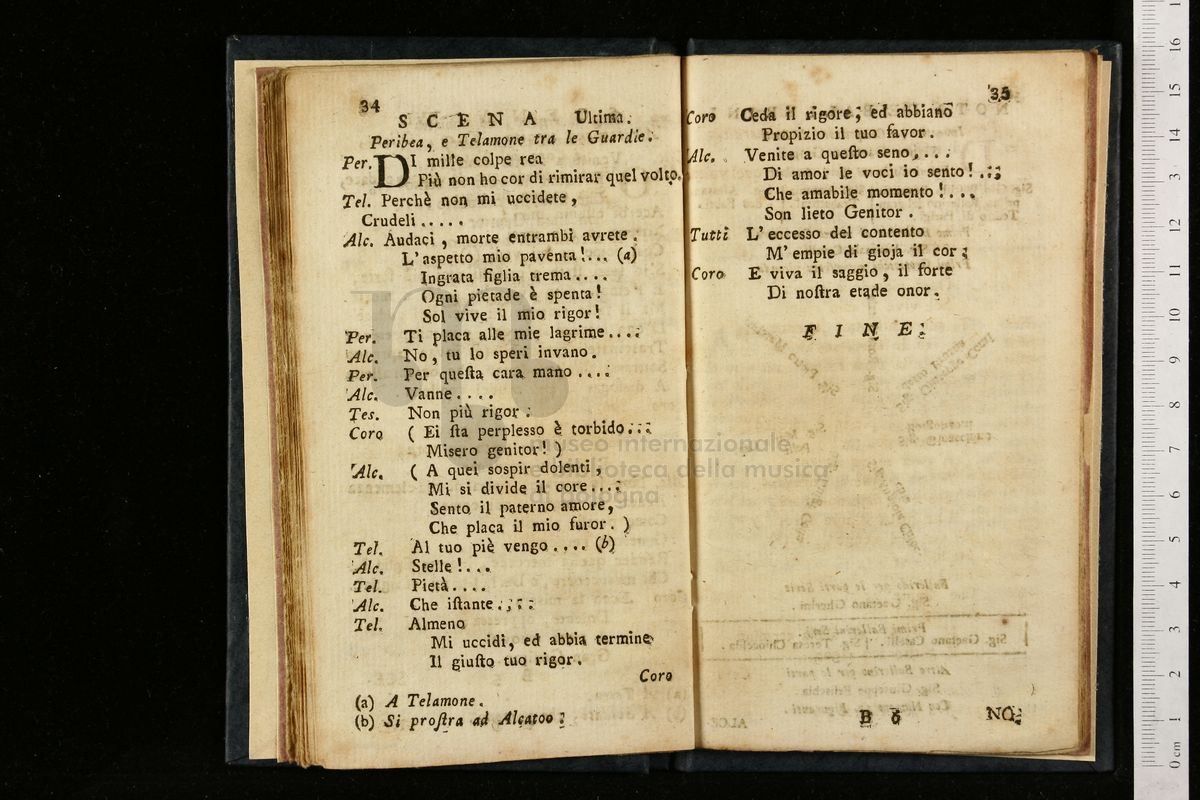 34
SCENA Ultima.
Peribea, e Telamone tra le Guardie.
Per. DI mille colpe rea
Più non ho cor di rimirar quel volto.
Tel. Perchè non mi uccidete,
Crudeli.....
Alc. Audaci, morte entrambi avrete.
L'aspetto mio paventa!... (a)
Ingrata figlia trema....
Ogni pietade è spenta!
Sol vive il mio rigor!
Per. Ti placa alle mie lagrime....
Alc. No, tu lo speri invano.
Per. Per questa cara mano....
Alc. Vanne....
Tes. Non più rigor.
Coro ( Ei sta perplesso è torbido...
Misero genitor! )
Alc. ( A quei sospir dolenti,
Mi si divide il core....
Sento il paterno amore,
Che placa il mio furor. )
Tel. Al tuo piè vengo.... (b)
Alc. Stelle!...
Tel. Pietà....
Alc. Che istante....
Tel. Almeno
Mi uccidi, ed abbia termine
Il giusto tuo rigor.
Coro
(a) A Telamone.
(b) Si prostra ad Alcatoo.
35
Coro Ceda il rigore; ed abbiano
Propizio il tuo favor.
Alc. Venite a questo seno....
Di amor le voci io sento!...
Che amabile momento!...
Son lieto Genitor.
Tutti L'eccesso del contento
M'empie di gioja il cor;
Coro E viva il saggio, il forte
Di nostra etade onor.
FINE.
B 6
NO-
museo internazionale
e biblioteca della musica
di bologna
0 cm 1 2 3 4 5 6 7 8 9 10 11 12 13 14 15 16